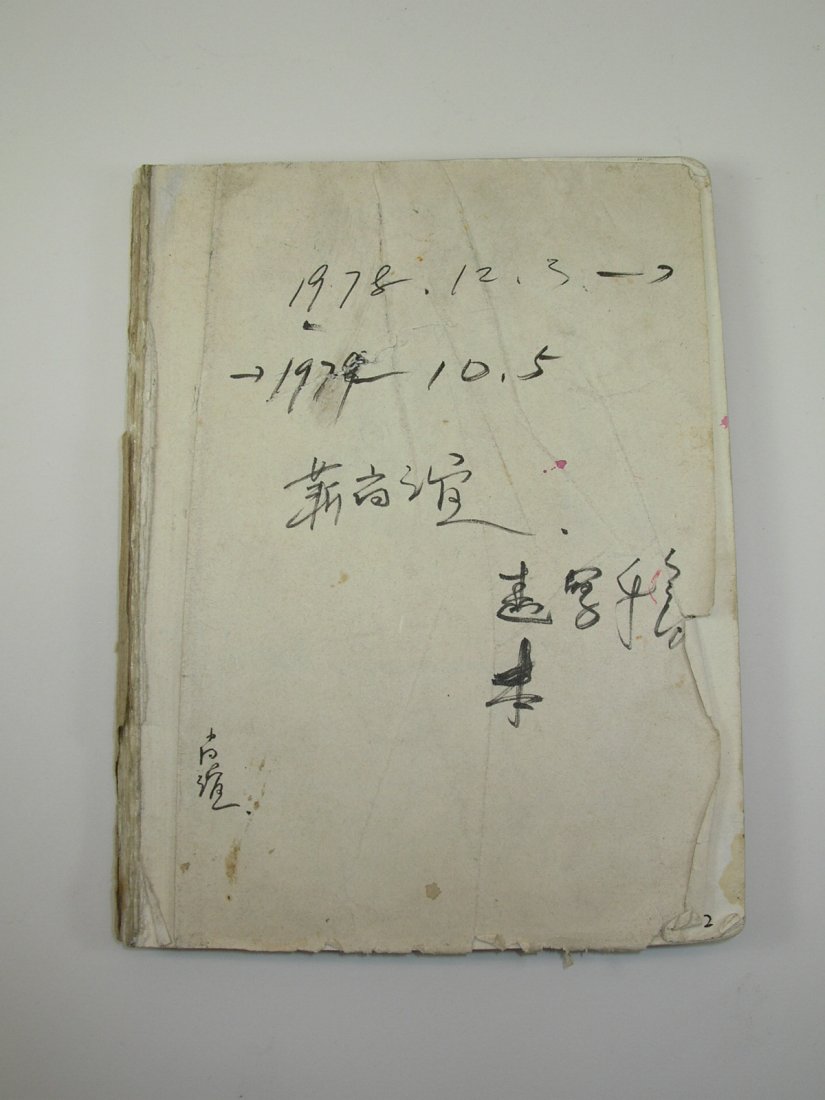 1978.12.3.→
→1979 10.5
靳尚谊.
速写稿
本
尚谊.
2